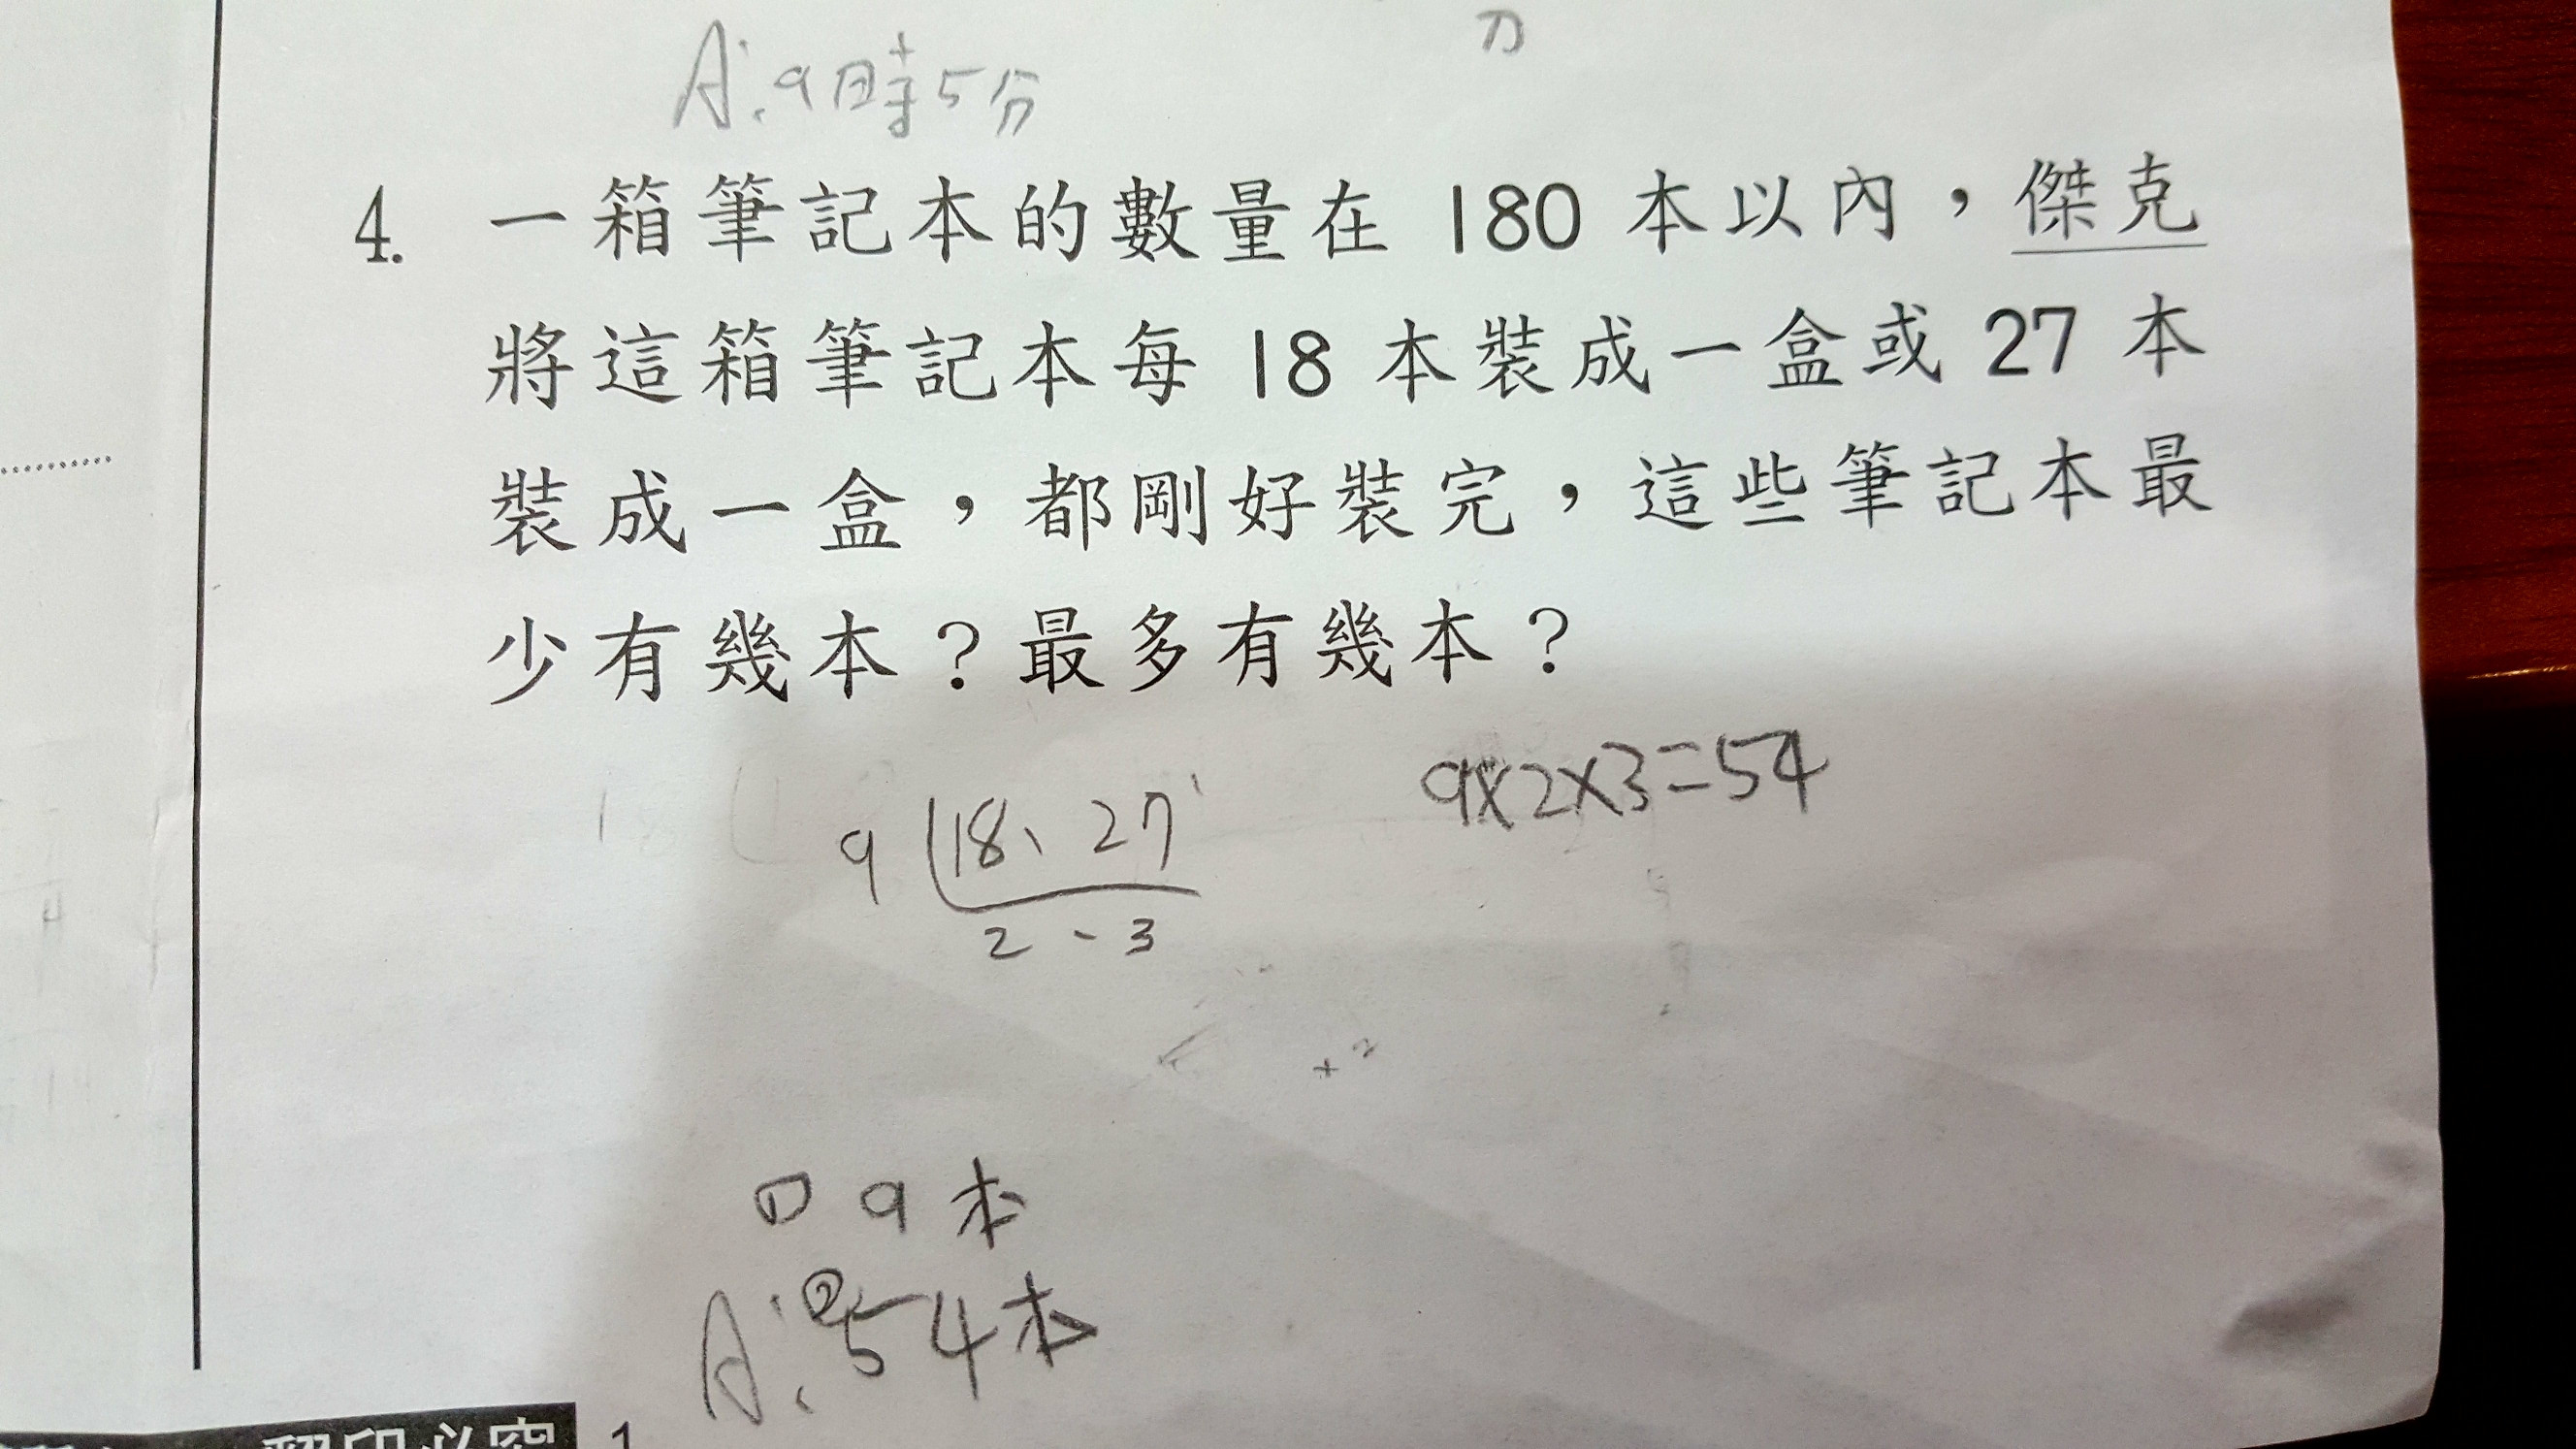 A:9時5分
4. 一箱筆記本的數量在 180 本以內，傑克
將這箱筆記本每 18 本裝成一盒或 27 本
裝成一盒，都剛好裝完，這些筆記本最
少有幾本？最多有幾本？
9×2×3=54
9 18、27
2、3
① 9本
A:②54本
翻印必究 1